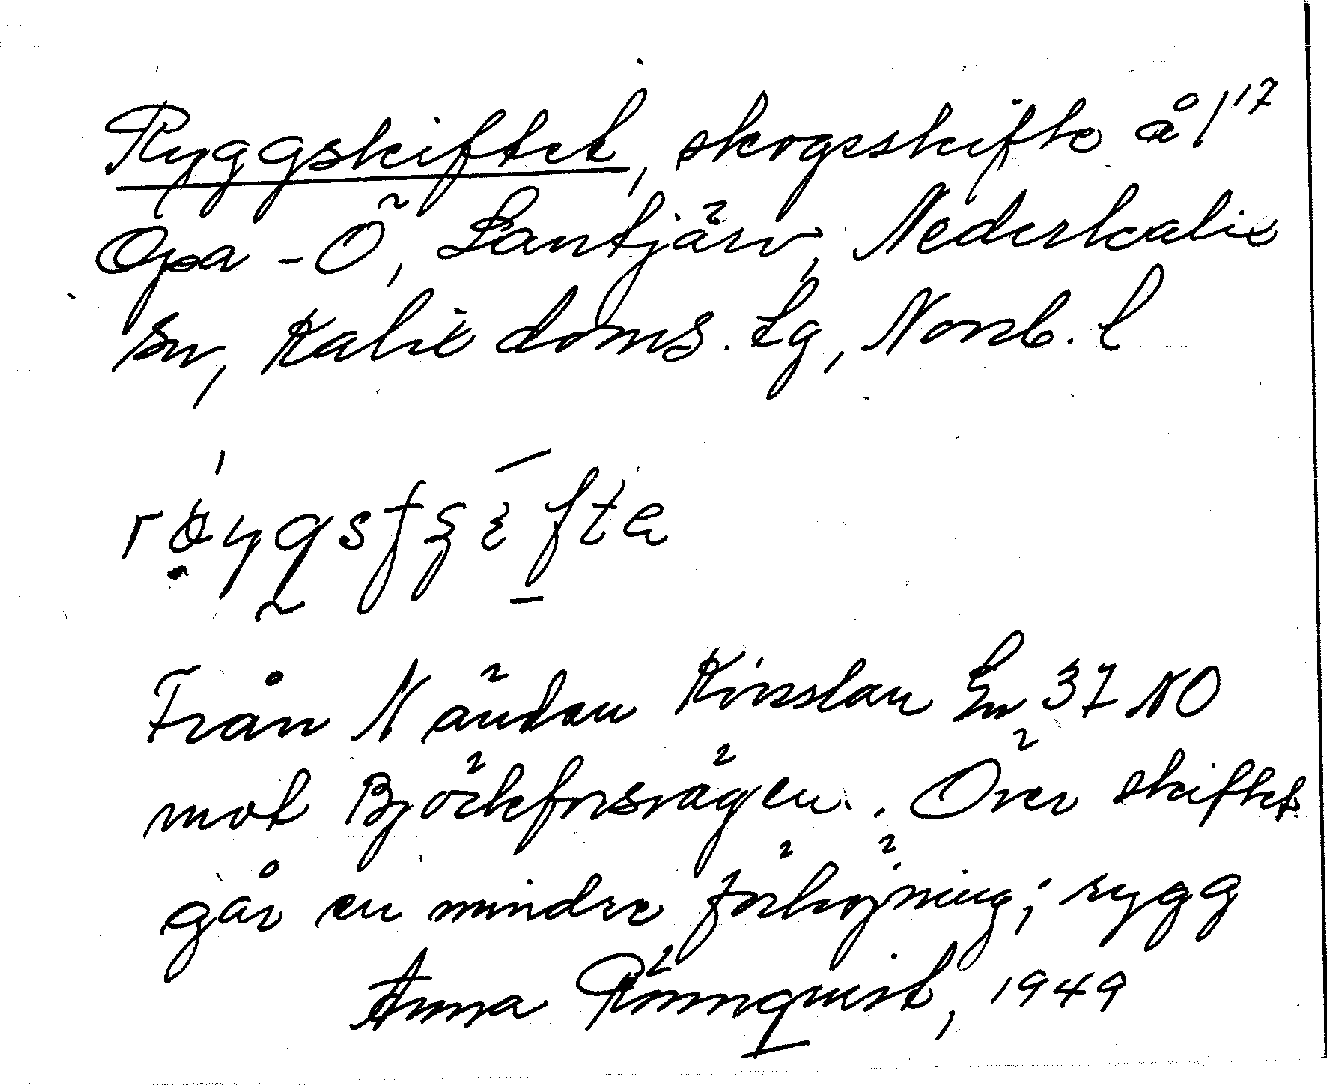 Ryggskiftet, skogsskifte å 1¹⁷
Opa-Ö, Lantjärv, Nederkalix
sn, Kalix doms. lg, Norrb. l
Från N ändan Kinslan Ln 37 NO
mot Björkforsvägen. Över skiftet
går en mindre förhöjning; rygg
Anna Rönnquist, 1949